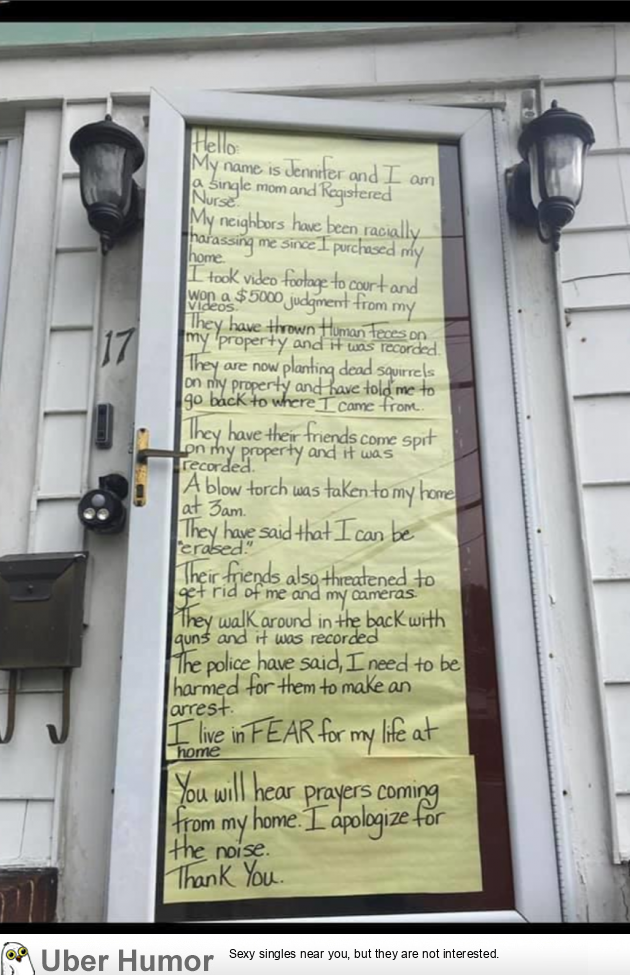 Hello:
My name is Jennifer and I am
a single mom and Registered
Nurse.
My neighbors have been racially
harassing me since I purchased my
home.
I took video footage to court and
won a $5000 judgment from my
videos.
They have thrown Human feces on
my property and it was recorded.
They are now planting dead squirrels
on my property and have told me to
go back to where I came from.
They have their friends come spit
on my property and it was
recorded.
A blow torch was taken to my home
at 3am.
They have said that I can be
"erased."
Their friends also threatened to
get rid of me and my cameras.
They walk around in the back with
guns and it was recorded
The police have said, I need to be
harmed for them to make an
arrest.
I live in FEAR for my life at
home
You will hear prayers coming
from my home. I apologize for
the noise.
Thank You.
17
Uber Humor
Sexy singles near you, but they are not interested.